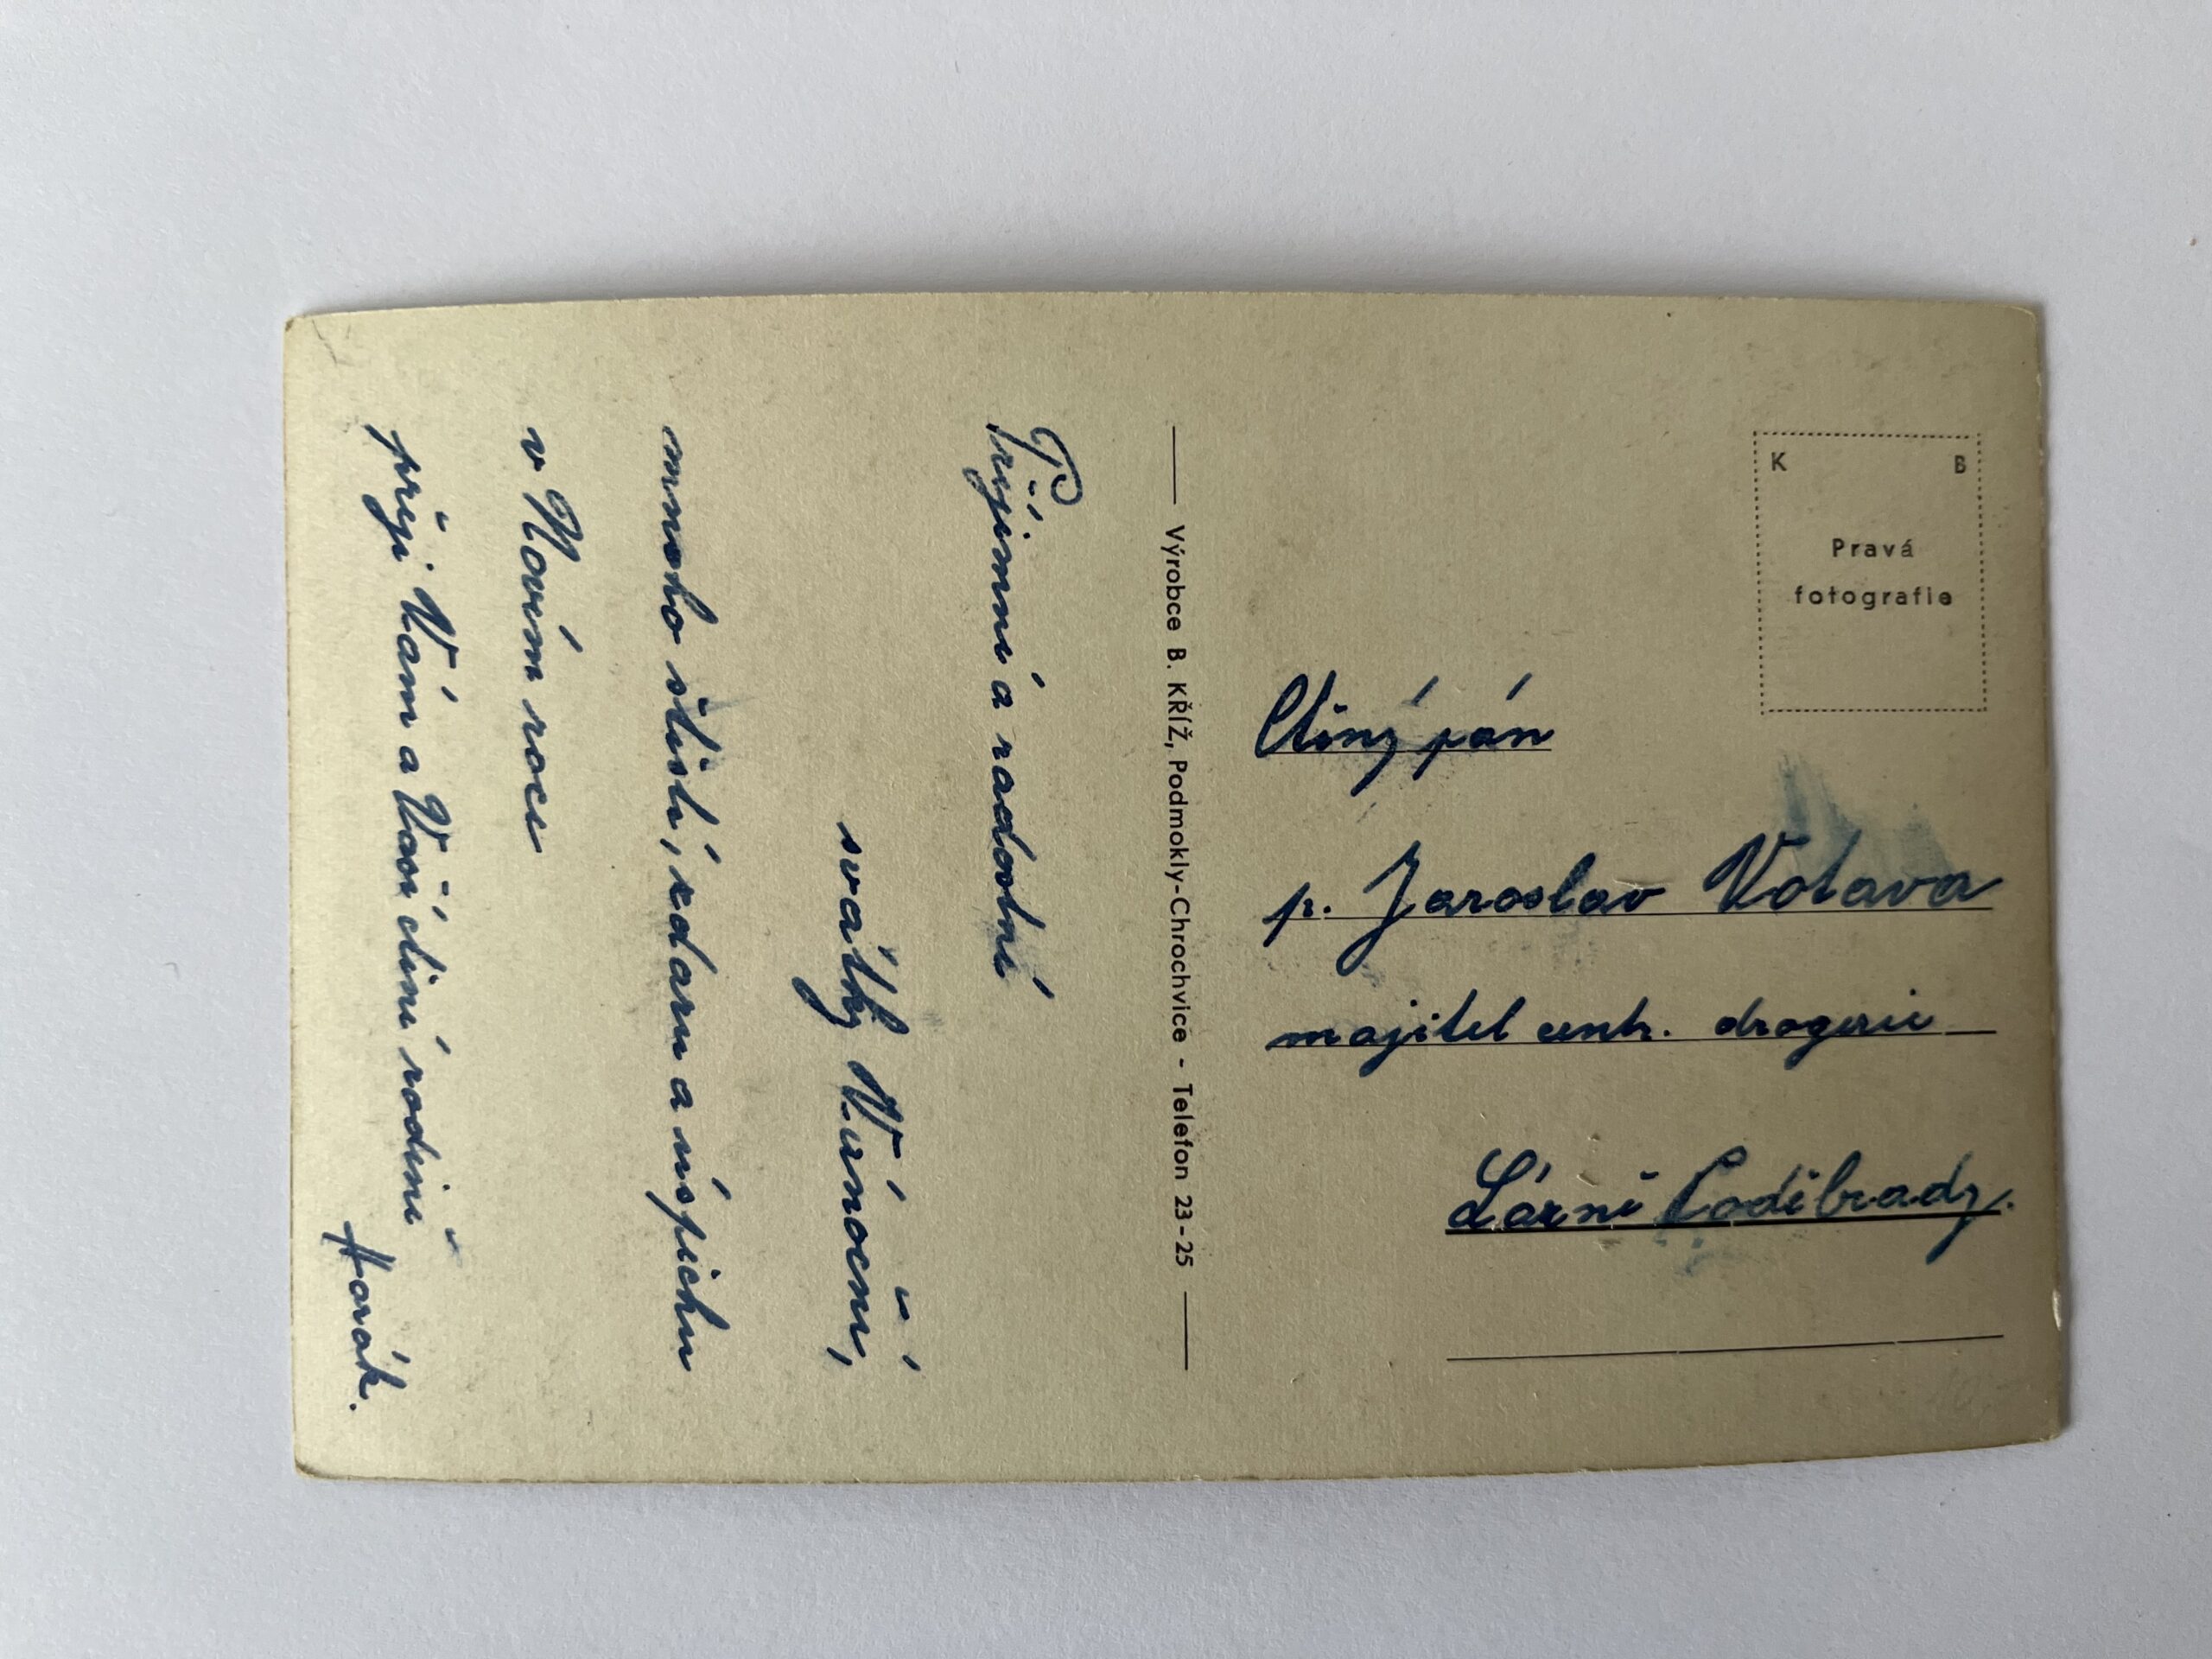 Příjemné a radostné
svátky Vánoční,
mnoho štěstí, zdaru a úspěchu
v Novém roce
přeji Vám a Vaší ctěné rodině
Horák.
Výrobce B. KŘÍŽ, Podmokly-Chrochvice - Telefon 23-25
K B
Pravá
fotografie
Ctěný pán
p. Jaroslav Votava
majitel centr. drogerie
Lázně Poděbrady.